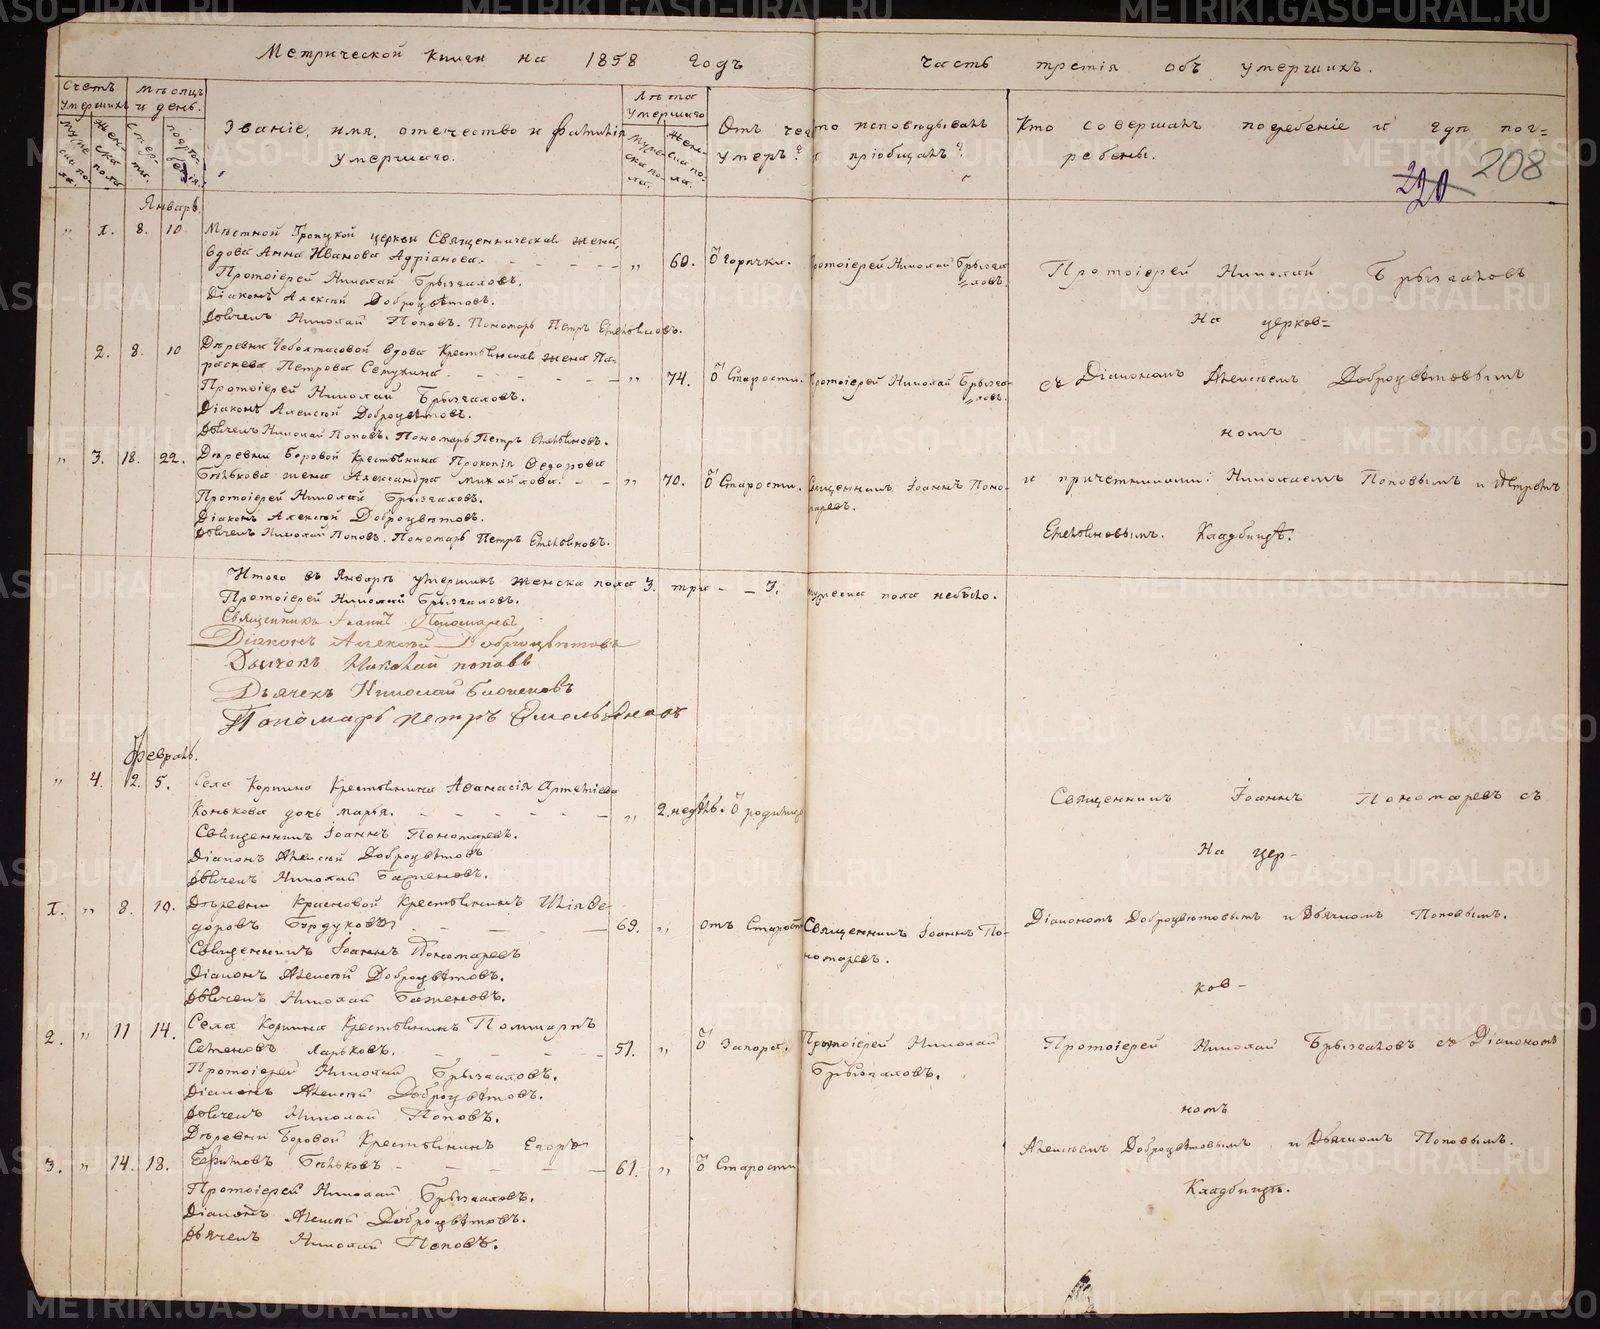 Метрической книги на 1858 годъ
часть третія объ умершихъ.
Счетъ умершихъ
Мѣсяцъ и день.
Званіе, имя, отечество и фамилія умершаго.
Лѣта умершаго
Отъ чего умеръ?
Кто исповѣдывалъ и пріобщалъ?
Кто совершалъ погребеніе и гдѣ погребены.
208
220
Январь.
" 1. 8. 10 Мѣстной Троицкой церкви Священническая жена,
вдова Анна Иванова Адріанова. " 60. Ѿ горячки. Протоіерей Николай Брызгаловъ. Протоіерей Николай Брызгаловъ
Протоіерей Николай Брызгаловъ.
Діаконъ Алексѣй Доброцвѣтовъ.
Дьячекъ Николай Поповъ. Пономарь Петръ
На церков=
2. 8. 10 Деревни вдова Крестьянская жена Па-
раскева Петрова " 74. Ѿ Старости. Протоіерей Николай Брызгаловъ. съ Діакономъ Алексѣемъ Доброцвѣтовымъ
Протоіерей Николай Брызгаловъ.
Діаконъ Алексѣй Доброцвѣтовъ.
Дьячекъ Николай Поповъ. Пономарь Петръ
номъ
" 3. 18. 22. Деревни Боровой Крестьянина Прокопія Ѳедорова
Бѣлькова жена Александра Михайлова. " 70. Ѿ Старости. Священникъ Іоаннъ Пономаревъ. и причетниками: Николаемъ Поповымъ и Петромъ
Протоіерей Николай Брызгаловъ.
Діаконъ Алексѣй Доброцвѣтовъ.
Дьячекъ Николай Поповъ. Пономарь Петръ
Кладбищѣ.
Итого въ Январѣ умершихъ женска пола 3. три – – 3. мужеска пола небыло.
Протоіерей Николай Брызгаловъ.
Священникъ Іоаннъ Пономаревъ
Діаконъ Алексѣй Доброцвѣтовъ
Дьячекъ Николай поповъ
Дьячекъ Николай
Пономарь петръ Омельяновъ
Февраль.
" 4. 2. 5. Села Коркина Крестьянина Аѳанасія Артеміева
Конькова дочь марья. " 2. недѣль. Ѿ родимца Священникъ Іоаннъ Пономаревъ съ
Священникъ Іоаннъ Пономаревъ.
Діаконъ Алексѣй Доброцвѣтовъ
Дьячекъ Николай Баженовъ.
На цер-
1. " 8. 10. Деревни Красновой Крестьянинъ Илія Ѳе-
доровъ Бурдуковъ 69. " отъ Старости Священникъ Іоаннъ Пономаревъ. Діакономъ Доброцвѣтовымъ и Дьячкомъ Поповымъ.
Священникъ Іоаннъ Пономаревъ
Діаконъ Алексѣй Доброцвѣтовъ.
Дьячекъ Николай Баженовъ.
ков-
2. " 11 14. Села Коркина Крестьянинъ
Семеновъ Ларьковъ. 51. " Ѿ Запора. Протоіерей Николай Брызгаловъ. Протоіерей Николай Брызгаловъ съ Діакономъ
Протоіерей Николай Брызгаловъ.
Діаконъ Алексѣй Доброцвѣтовъ.
Дьячекъ Николай Поповъ.
номъ
Деревни Боровой Крестьянинъ Егоръ
3. " 14. 18. Ефимовъ Бѣльковъ 61. " Ѿ Старости Алексѣемъ Доброцвѣтовымъ и Дьячкомъ Поповымъ.
Протоіерей Николай Брызгаловъ.
Діаконъ Алексѣй Доброцвѣтовъ.
Дьячекъ Николай Поповъ.
Кладбищѣ.
METRIKI.GASO-URAL.RU